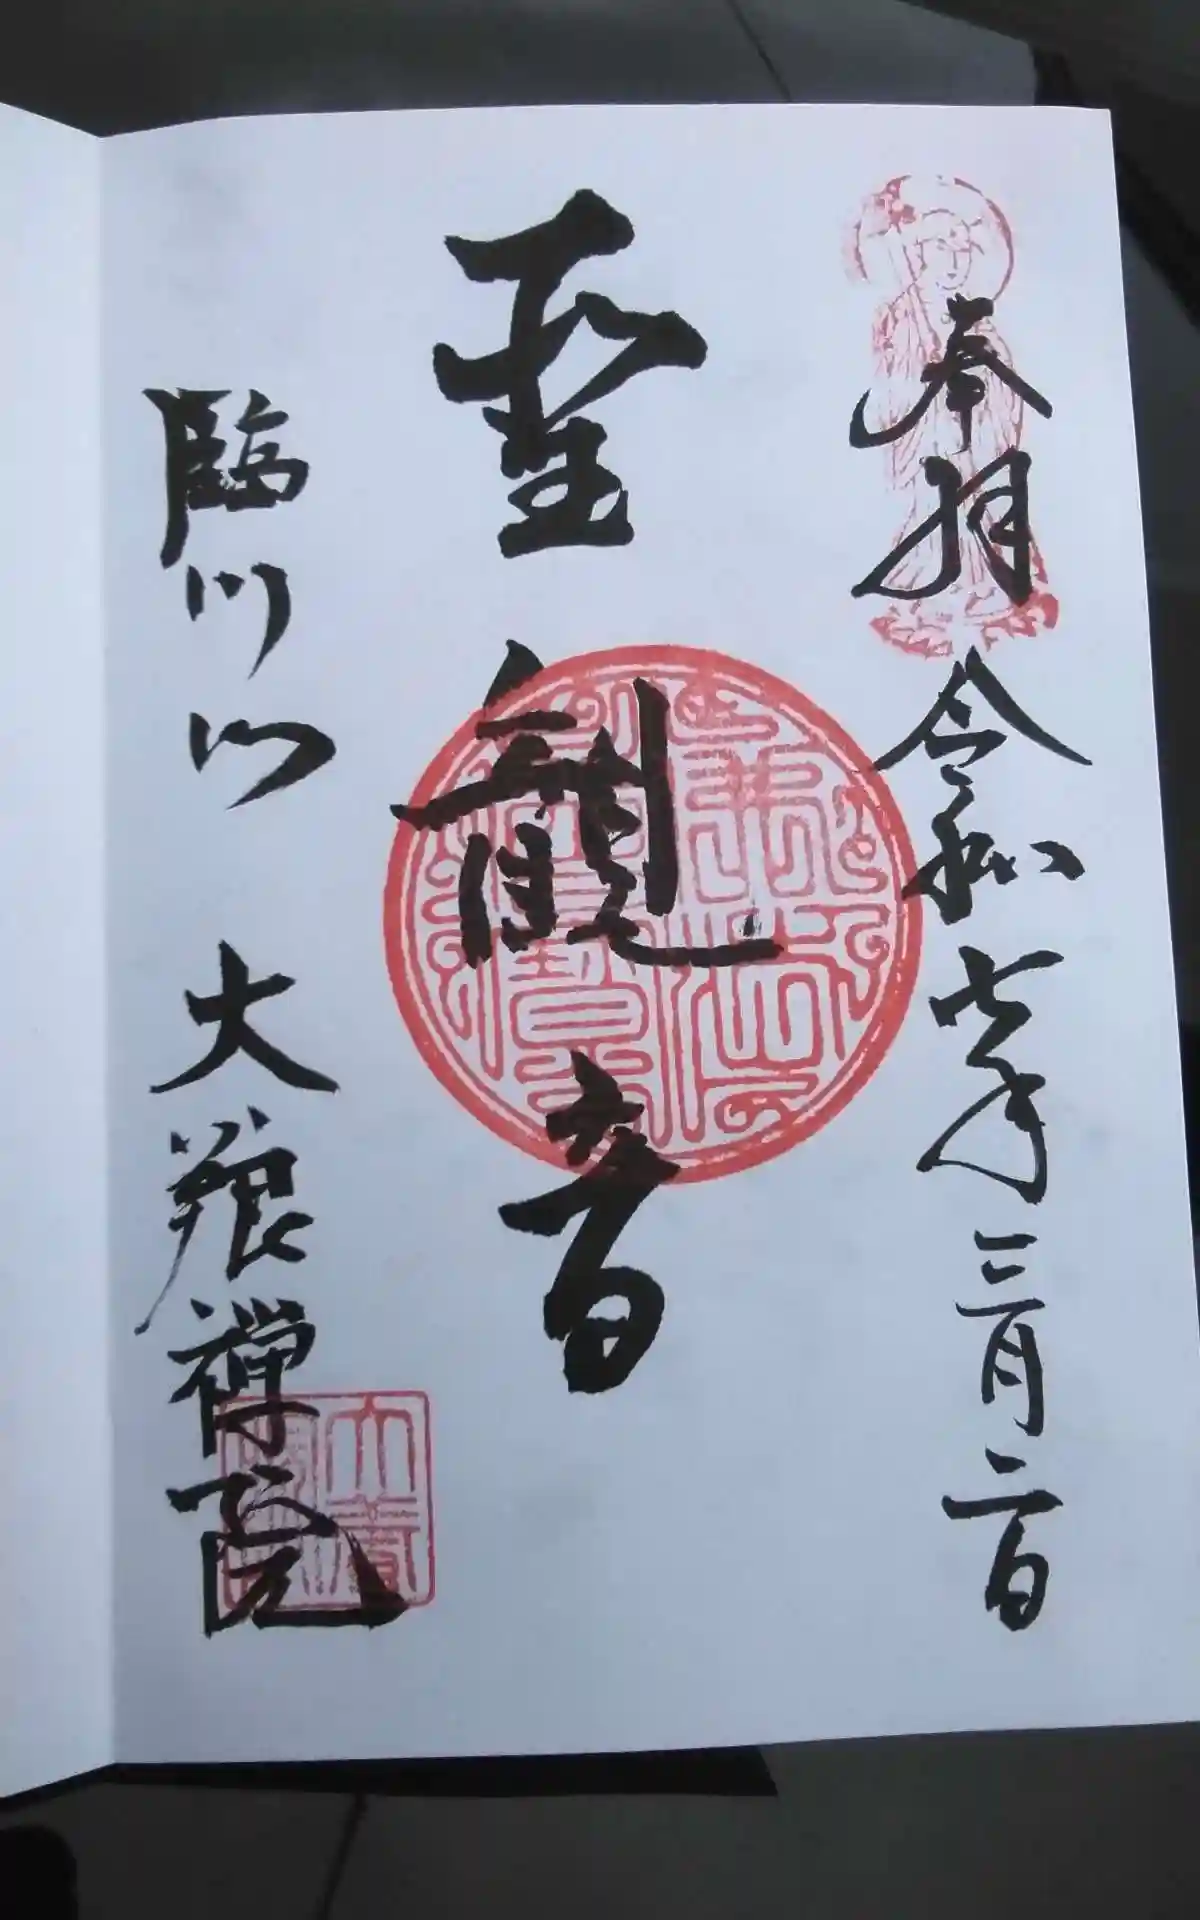 奉拝 令和七年三月二日
聖観音
臨川山 大養禅院